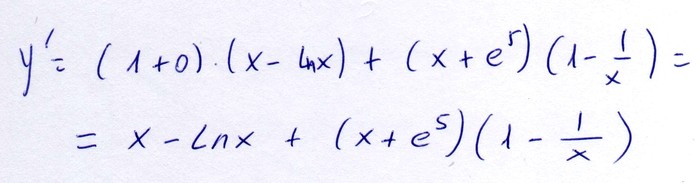 y' = (1+0)·(x - lnx) + (x + e⁵)(1 - 1/x) =
= x - lnx + (x + e⁵)(1 - 1/x)